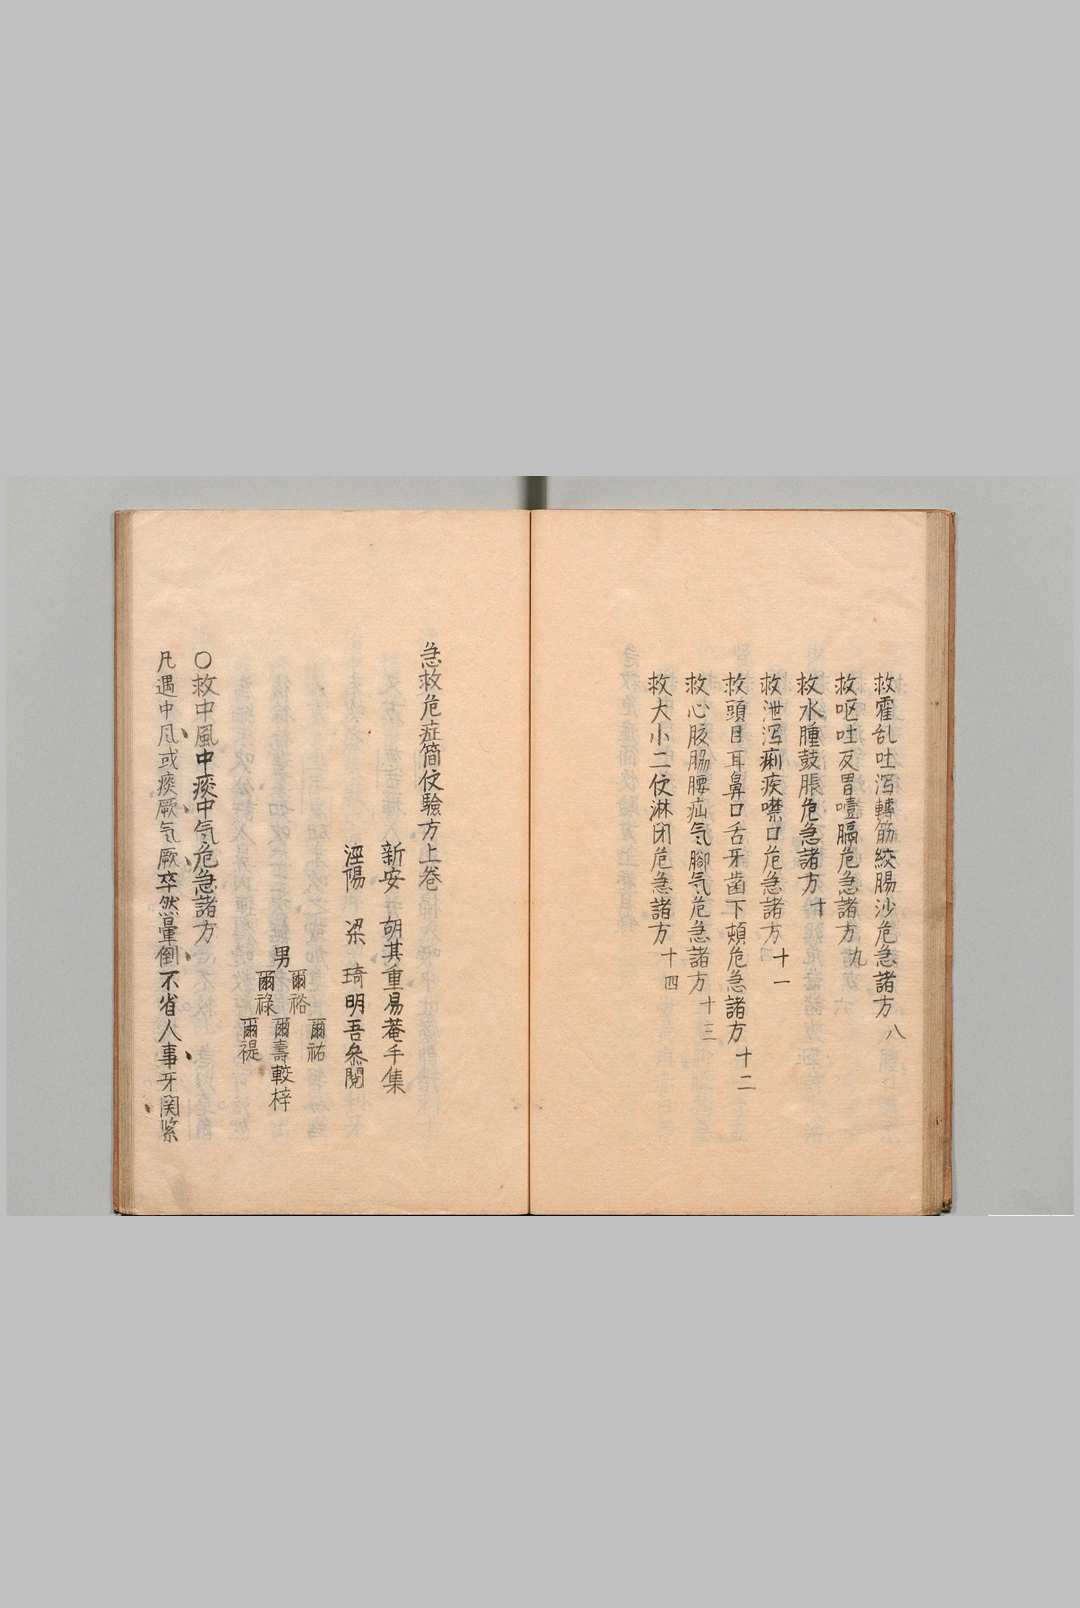 救霍乱吐泻轉筋絞腸沙危急諸方 八
救呕吐反胃噎膈危急諸方 九
救水腫鼓脹危急諸方 十
救泄泻痢疾噤口危急諸方 十一
救頭目耳鼻口舌牙齒下頰危急諸方 十二
救心胘脇腰疝气腳气危急諸方 十三
救大小二便淋闭危急諸方 十四
急救危症簡便驗方上卷
新安 胡其重易菴手集
涇陽 梁 琦明吾叅閱
爾祐
爾裕
男 爾壽較梓
爾祿
爾禔
○救中風中痰中气危急諸方
凡遇中風或痰厥气厥卒然暈倒不省人事牙関紧